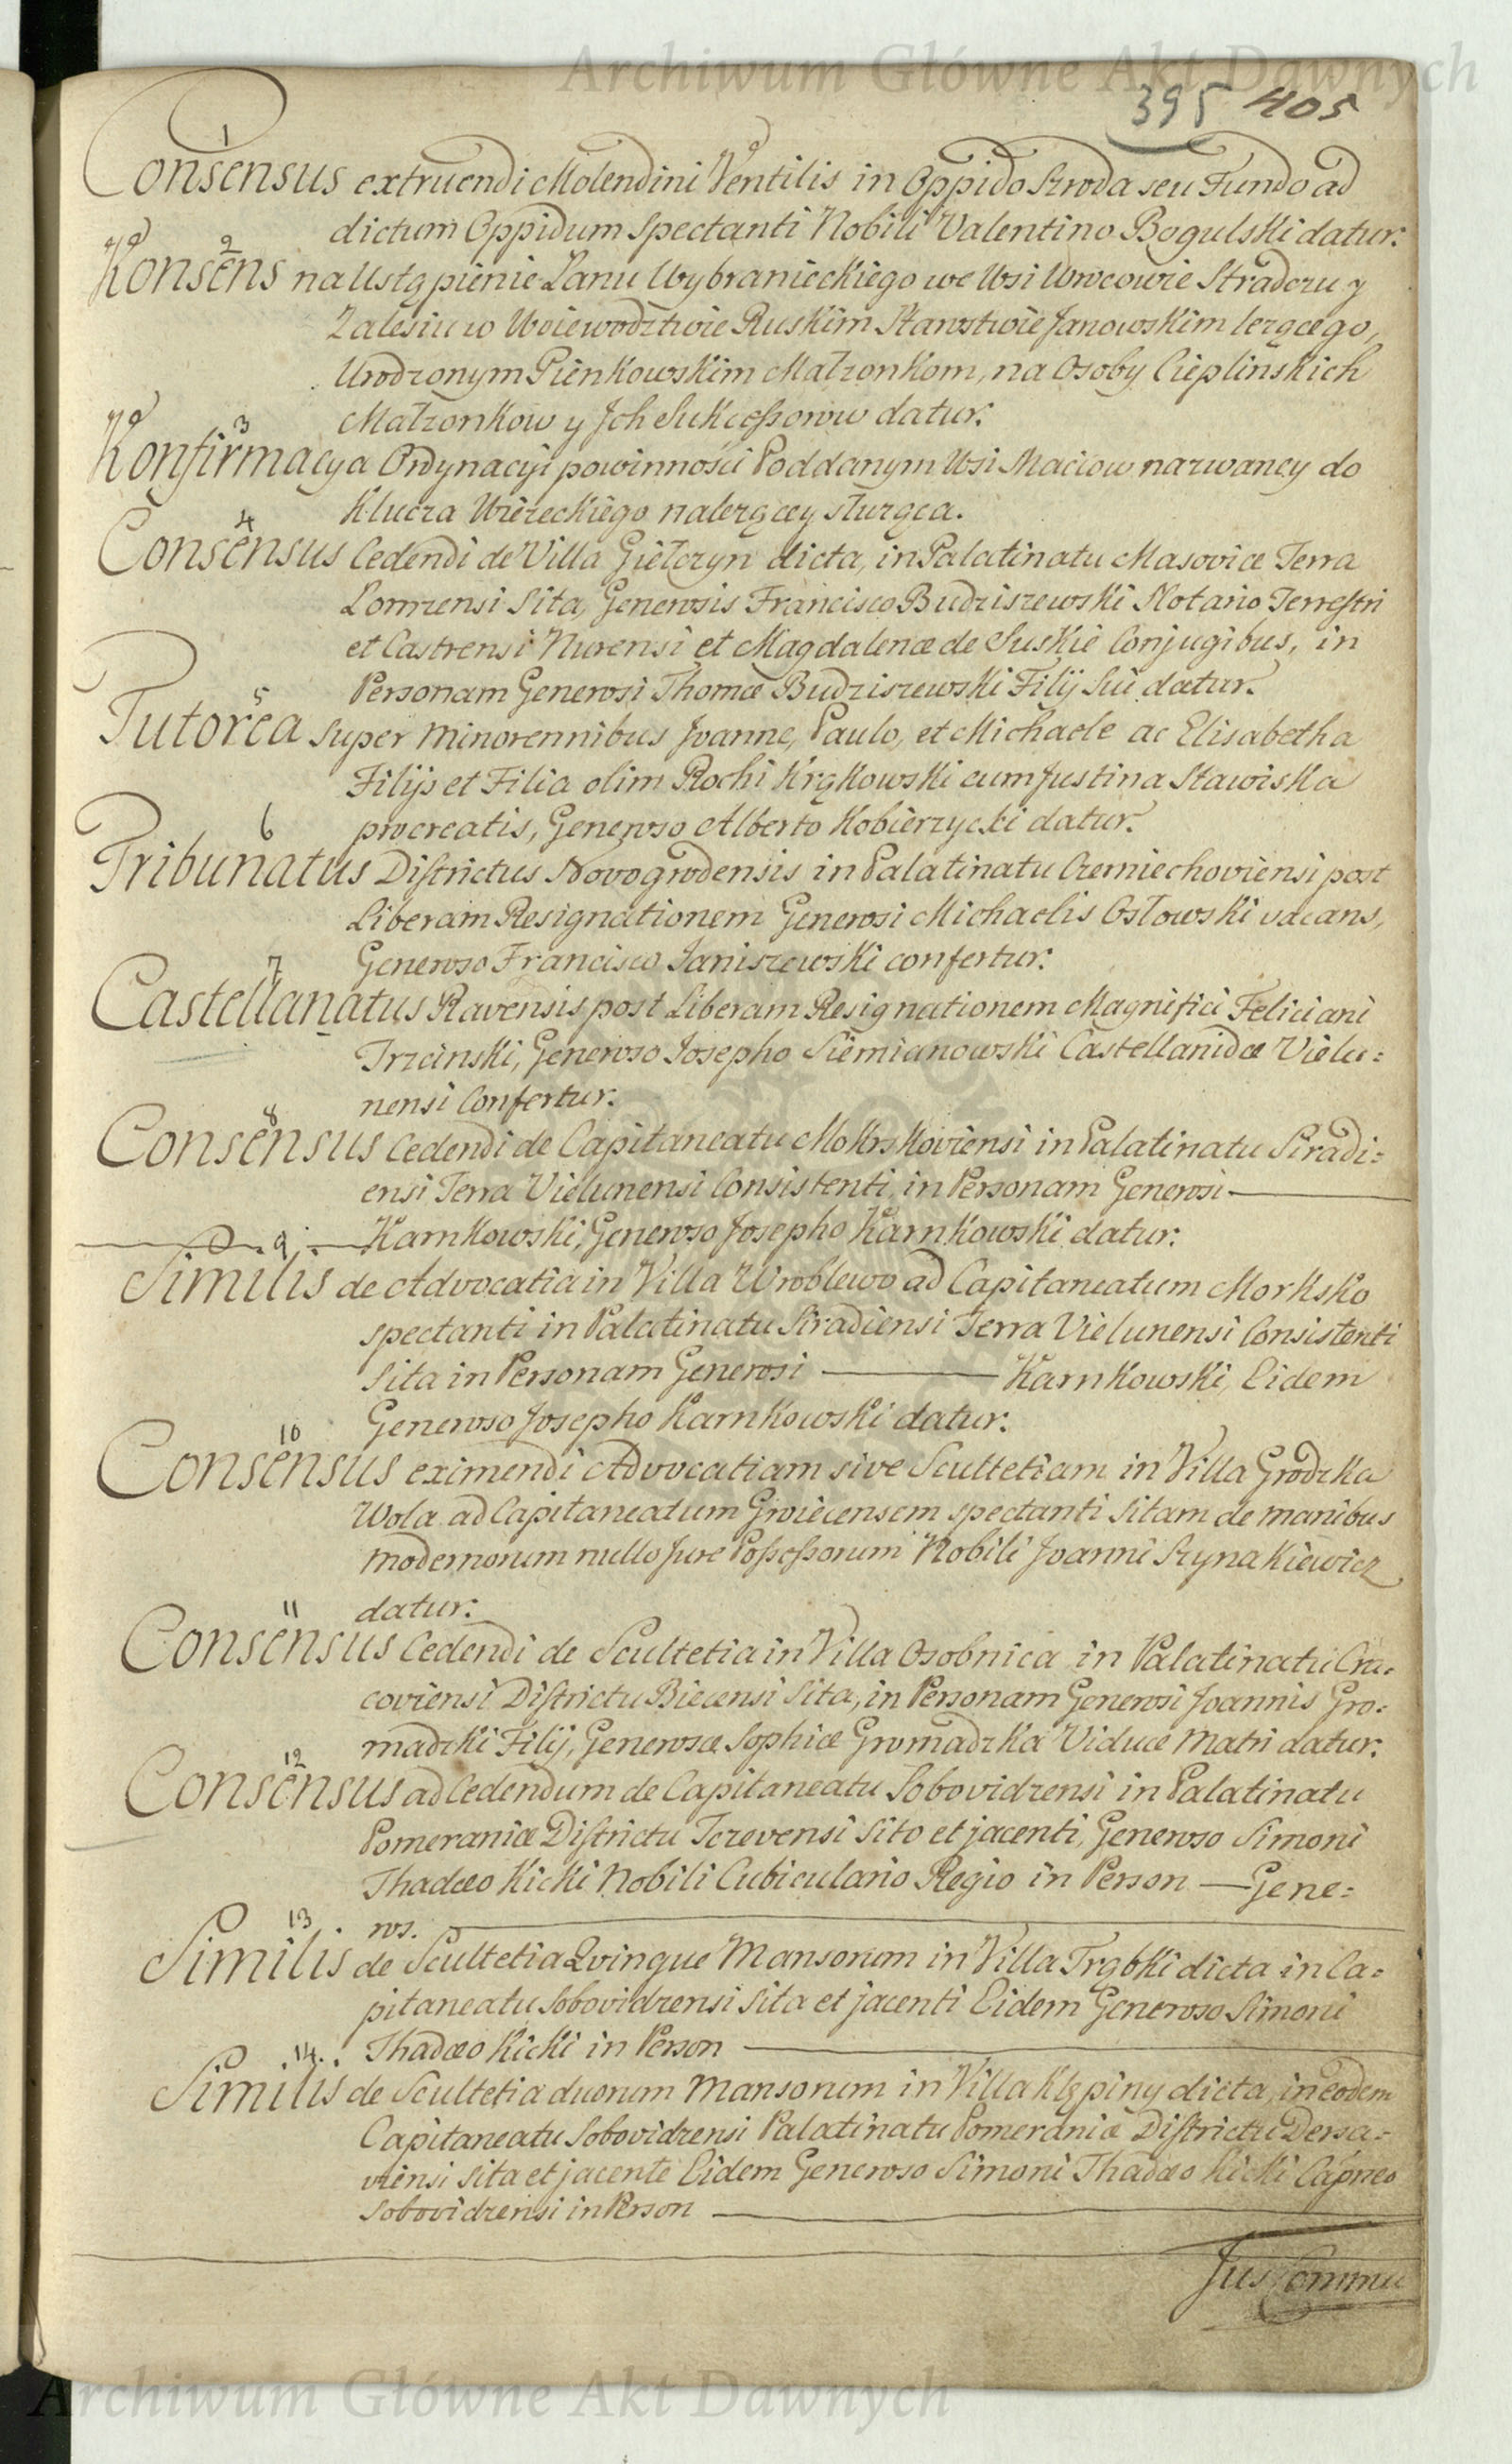 Archiwum Główne Akt Dawnych
395 405
1
Consensus extruendi Molendini Ventilis in Oppido Szroda seu Fundo ad
dictum Oppidum Spectanti Nobili Valentino Bogulski datur.
2
Konsens na Ustąpienie Łanu Wybranieckiego we Wsi Wrocowie Stradczu y
Zalesiu w Woiewodztwie Ruskim Starostwie Janowskim lezącego,
Urodzonym Pienkowskim Małzonkom, na Osoby Cieplinskich
Małzonkow y Jch Sukcessorow datur.
3
Konfirmacya Ordynacyi powinnosci Poddanym Wsi Maciow nazwaney do
Klucza Wiereckiego nalezącey sluzgca.
4
Consensus Cedendi de Villa Giełczyn dicta, in Palatinatu Masoviæ Terra
Lomzensi Sita, Generosis Francisco Budziszewski Notario Terrestri
et Castrensi Nurensi et Magdalenæ de Suskie Conjugibus, in
Personam Generosi Thomæ Budziszewski Filij Sui datur.
5
Tutorea super Minorennibus Joanne, Paulo, et Michaele ac Elisabetha
Filijs et Filia olim Rochi Krąkowski cum Justina Stawiska
procreatis, Generoso Alberto Kobierzycki datur.
6
Tribunatus Districtus Novogrodensis in Palatinatu Czerniechoviensi post
Liberam Resignationem Generosi Michaelis Osłowski vacans,
Generoso Francisco Janiszewski confertur.
7
Castellanatus Ravensis post Liberam Resignationem Magnifici Feliciani
Trzcinski, Generoso Josepho Siemianowski Castellanidæ Vielu=
nensi Confertur.
8
Consensus Cedendi de Capitaneatu Mokrskoviensi in Palatinatu Siradi=
ensi Terra Vielunensi Consistenti in Personam Generosi
Karnkowski, Generoso Josepho Karnkowski datur.
9
Similis de Advocatia in Villa Wroblewo ad Capitaneatum Morksko
spectanti in Palatinatu Siradiensi Terra Vielunensi Consistenti
Sita in Personam Generosi Karnkowski, Eidem
Generoso Josepho Karnkowski datur.
10
Consensus eximendi Advocatiam sive Scultetiam in Villa Grodzka
Wola ad Capitaneatum Groiecensem spectanti Sitam de manibus
modernorum nullo Jure Possessorum Nobili Joanni Szynakiewicz
datur.
11
Consensus Cedendi de Scultetia in Villa Osobnica in Palatinatu Cra=
coviensi Districtu Biecensi Sita, in Personam Generosi Joannis Gro=
madzki Filij, Generosæ Sophiæ Gromadzka Viduæ Matri datur.
12
Consensus ad Cedendum de Capitaneatu Sobovidzensi in Palatinatu
Pomeraniæ Districtu Tczevensi Sito et jacenti, Generoso Simoni
Thadæo Kicki Nobili Cubiculario Regio in Person Gene=
ros.
13
Similis de Scultetia Qvinque Mansorum in Villa Trąbki dicta in Ca=
pitaneatu Sobovidzensi Sita et jacenti Eidem Generoso Simoni
Thadæo Kicki in Person
14.
Similis de Scultetia duorum Mansorum in Villa Klępiny dicta, in eodem
Capitaneatu Sobovidzensi Palatinatu Pomeraniæ Districtu Dersa=
viensi Sita et jacente Eidem Generoso Simoni Thadæo Kicki Capneo
Sobovidzensi in Person
Jus Commu
Archiwum Główne Akt Dawnych